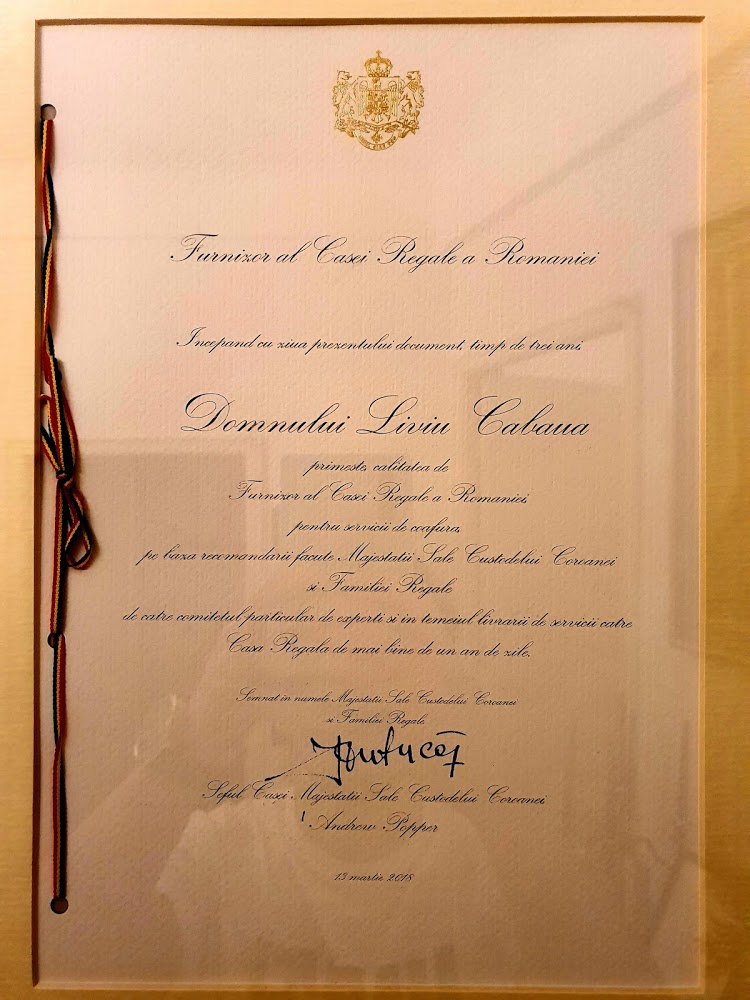 Furnizor al Casei Regale a Romaniei
Incepand cu ziua prezentului document, timp de trei ani,
Domnului Liviu Cabaua
primeste, calitatea de
Furnizor al Casei Regale a Romaniei,
pentru servicii de coafura,
pe baza recomandarii facute Majestatii Sale Custodelui Coroanei
si Familiei Regale
de catre comitetul particular de experti si in temeiul livrarii de servicii catre
Casa Regala de mai bine de un an de zile.
Semnat in numele Majestatii Sale Custodelui Coroanei
si Familiei Regale,
Seful Casei Majestatii Sale Custodelui Coroanei
Andrew Popper
13 martie 2018